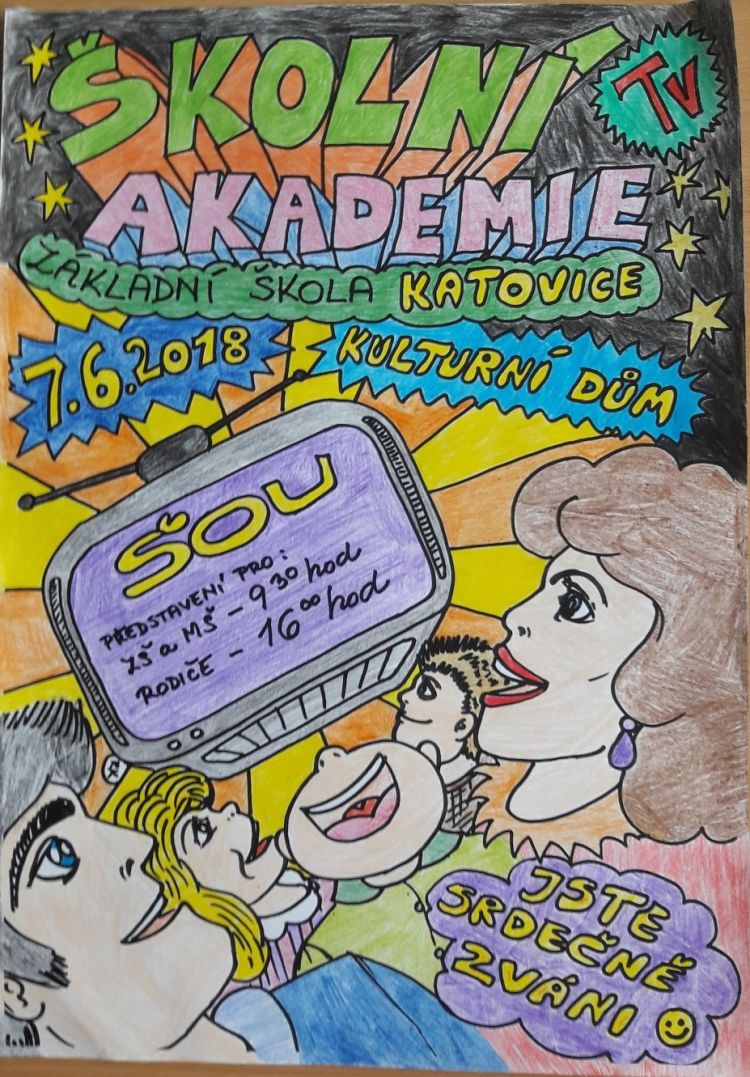 ŠKOLNÍ
TV
AKADEMIE
ZÁKLADNÍ ŠKOLA KATOVICE
7.6.2018
KULTURNÍ DŮM
ŠOU
PŘEDSTAVENÍ PRO:
ZŠ a MŠ - 9 30 hod
RODIČE - 16 00 hod
JSTE
SRDEČNĚ
ZVÁNI